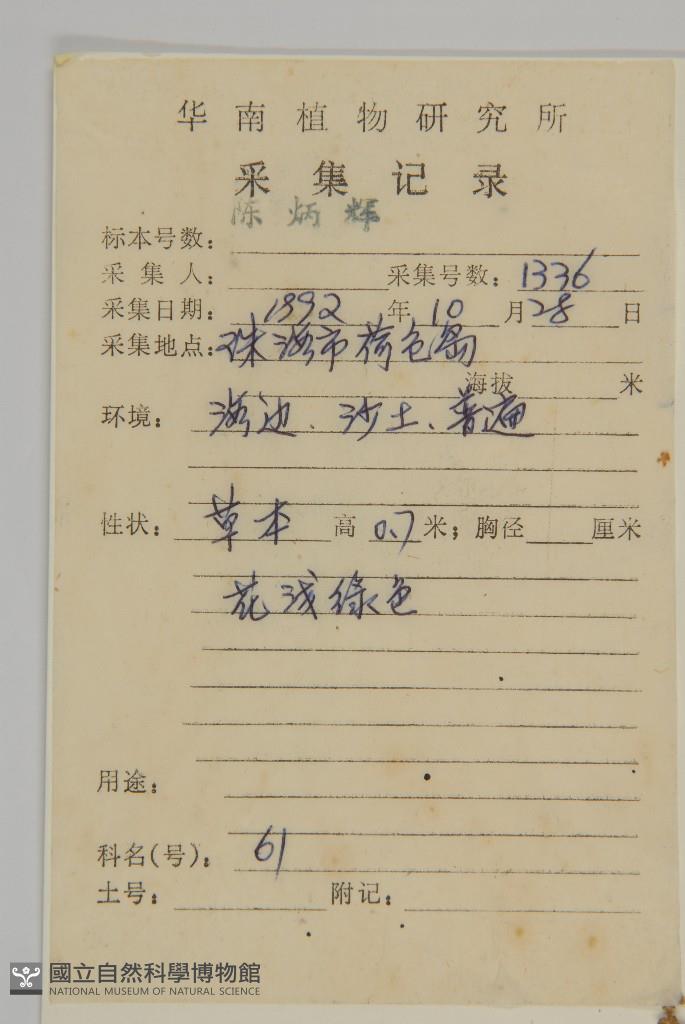 华南植物研究所
采集记录
陈炳辉
标本号数：
采集人： 采集号数：1336
采集日期：1892年10月28日
采集地点：珠海市荷包岛
海拔 米
环境：海边、沙土、普遍
性状：草本 高 0.7 米；胸径 厘米
花浅綠色
用途：
科名(号)：61
土号： 附记：
國立自然科學博物館
NATIONAL MUSEUM OF NATURAL SCIENCE